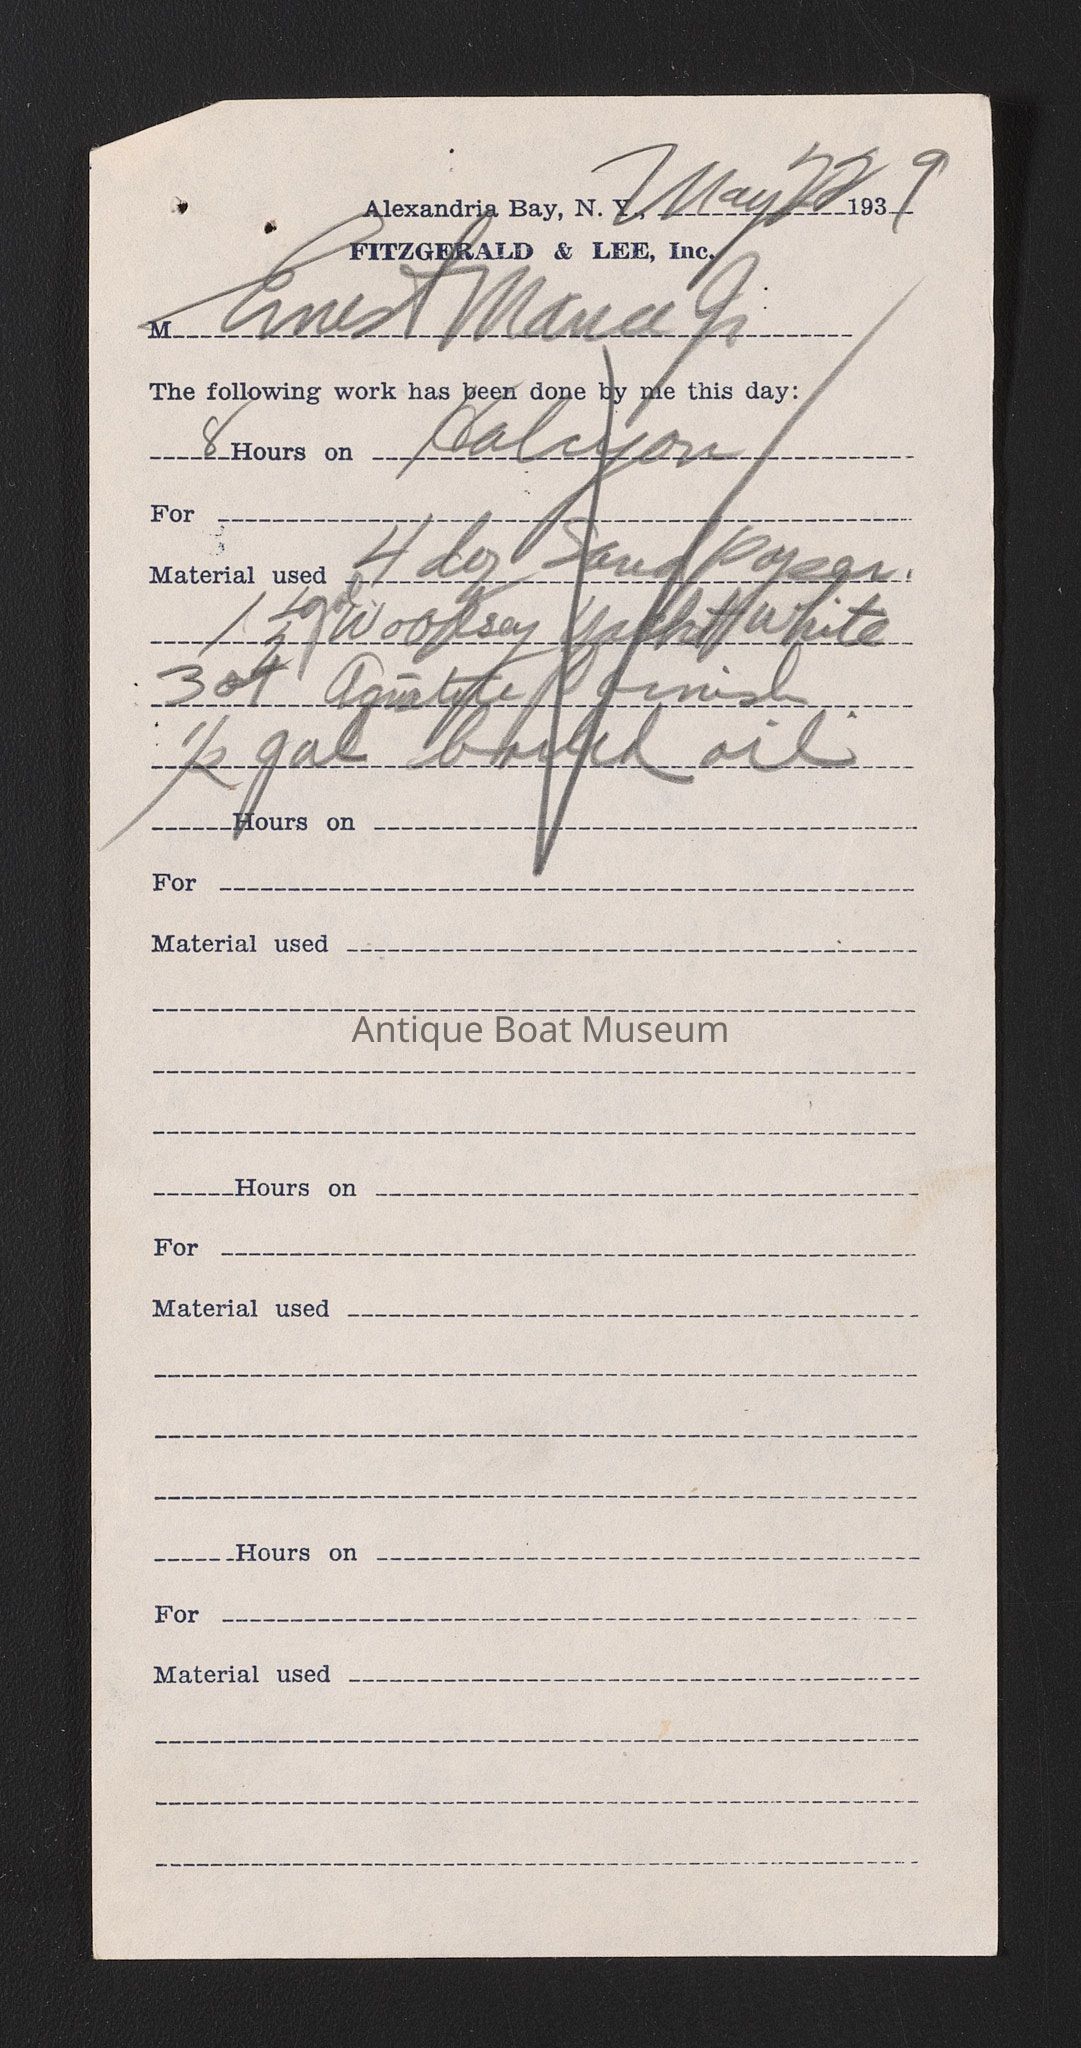 Alexandria Bay, N. Y., May 22 1939
FITZGERALD & LEE, Inc.
M Ernest Mance Jr
The following work has been done by me this day:
8 Hours on Halcyon
For
Material used 4 doz Sand paper.
1 1/2 gal Woolsey Yacht White
3 qt Varnish
1/2 gal boiled oil
Hours on
For
Material used
Antique Boat Museum
Hours on
For
Material used
Hours on
For
Material used